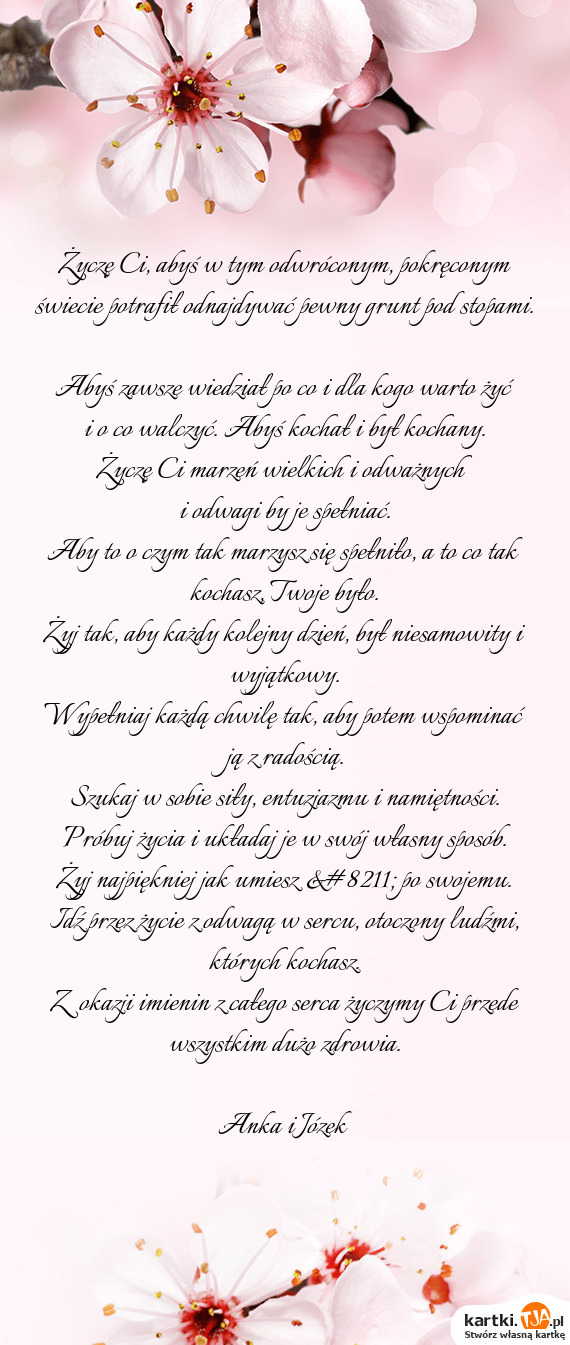 Życzę Ci, abyś w tym odwróconym, pokręconym
świecie potrafił odnajdywać pewny grunt pod stopami.
Abyś zawsze wiedział po co i dla kogo warto żyć
i o co walczyć. Abyś kochał i był kochany.
Życzę Ci marzeń wielkich i odważnych
i odwagi by je spełniać.
Aby to o czym tak marzysz się spełniło, a to co tak
kochasz, Twoje było.
Żyj tak, aby każdy kolejny dzień, był niesamowity i
wyjątkowy.
Wypełniaj każdą chwilę tak, aby potem wspominać
ją z radością.
Szukaj w sobie siły, entuzjazmu i namiętności.
Próbuj życia i układaj je w swój własny sposób.
Żyj najpiękniej jak umiesz &#8211; po swojemu.
Idź przez życie z odwagą w sercu, otoczony ludźmi,
których kochasz.
Z okazji imienin z całego serca życzymy Ci przede
wszystkim dużo zdrowia.
Anka i Józek
kartki.TJA.pl
Stwórz własną kartkę